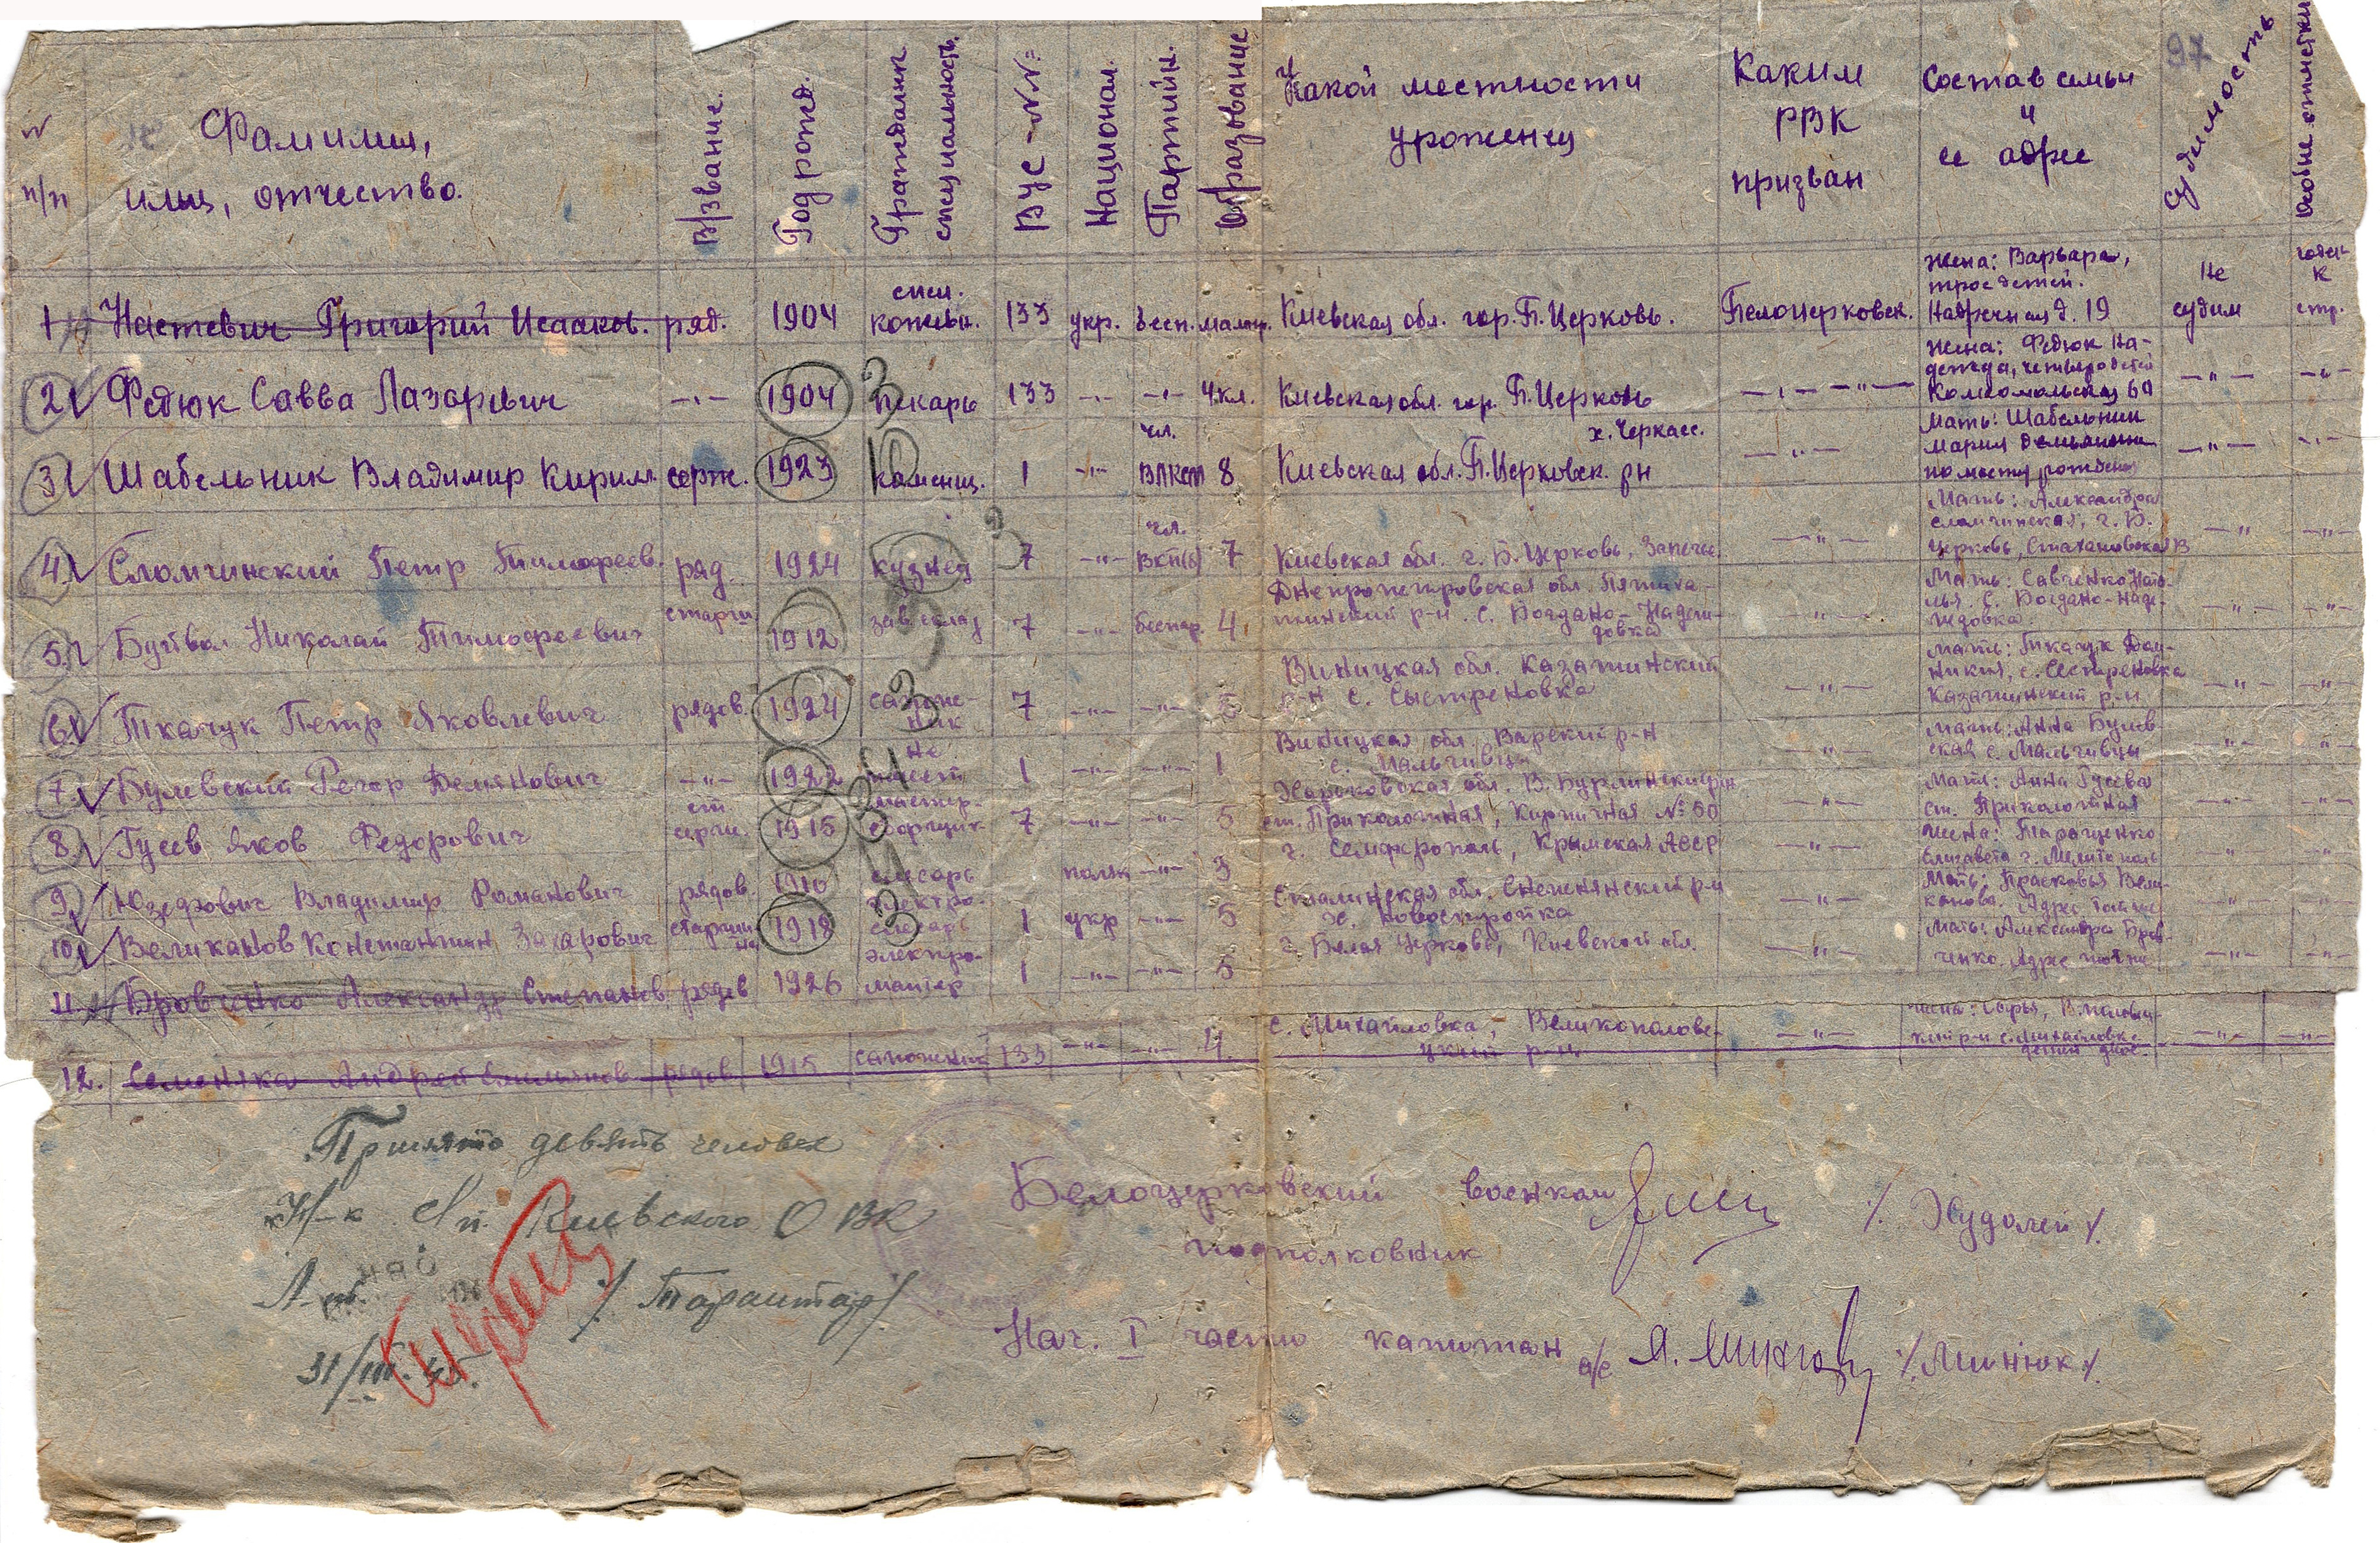 97
№ п/п
Фамилия, имя, отчество.
В/звание.
Год рожд.
Гражданск. специальность.
ВУС-№№
Национал.
Партийн.
Образование
Какой местности уроженец
Каким РВК призван
Состав семьи и ее адрес
Судимость
Особые отметки
1 Григорий Исааков. ряд. 1904 133 укр. бесп. малогр. Киевская обл. гор. Б. Церковь. Белоцерковск. Жена: Варвара, трое детей. д. 19 Не судим стр.
2 Федюк Савва Лазаревич —"— 1904 пекарь 133 —"— —"— 4 кл. Киевская обл. гор. Б. Церковь —"— —"— Жена: Федюк Надежда, четверо детей Комсомольская —"— —"—
3 Шабельник Владимир Кирилл. серж. 1923 каменщ. 1 —"— чл. ВЛКСМ 8 Киевская обл. Б. Церковск. рн х. Черкасс. —"— Мать: Шабельник Мария по месту рождения —"— —"—
4. Сломчинский Петр Тимофеев. ряд. 1924 кузнец 7 —"— чл. ВКП(б) 7 Киевская обл. г. Б. Церковь, —"— Мать: Александра Сломчинская, г. Б. Церковь, Стахановская —"— —"—
5. Николай Тимофеевич старш. 1912 зав. склад 7 —"— беспар. 4 Днепропетровская обл. р-н. с. Богдано-Надеждовка —"— Мать: Савченко с. Богдано-Надеждовка —"— —"—
6. Ткачук Петр Яковлевич рядов. 1924 7 —"— —"— 5 Виницкая обл. Казатинский р-н с. Сыстреновка —"— Мать: Ткачук с. Сестреновка Казатинский р-н —"— —"—
7. Булевский Демянович —"— 1922 не имеет 1 —"— —"— 1 Виницкая обл. Барский р-н с. Мальчивцы —"— Мать: Анна Булевская с. Мальчивцы —"— —"—
8. Гусев Яков Федорович ст. серж. 1915 мастер-сборщик 7 —"— —"— 5 Харьковская обл. В. Бурлинский рн ст. Приколотная, Кирпичная № 50 —"— Мать: Анна Гусева ст. Приколотная —"— —"—
9. Юзефович Владимир Романович рядов. 1910 слесарь поляк —"— 3 г. Семферополь, Крымская АССР —"— Жена: Таращенко Елизавета г. Мелитополь —"— —"—
10. Великанов Константин Захарович старшина 1918 электро-слесарь 1 укр —"— 5 Сталинская обл. Снежнянский р-н х. Новостройка —"— Мать: Прасковья Великанова. —"— —"—
11. Бровченко Александр Степанов. рядов 1926 электро-мантер 1 —"— —"— 5 г. Белая Церковь, Киевской обл. —"— Мать: Александра Бровченко —"— —"—
12. Семеняка Андрей рядов 1915 сапожник 133 —"— —"— 4 с. Михайловка, Великополовецкий р-н —"— с. Михайловка детей двое. —"— —"—
Принято девять человек
Н-к Киевского ОВК
/Тараштар/
31/III. 45.
Белоцерковский военком /Худолей/.
подполковник
Нач. I части капитан /Минюк/.